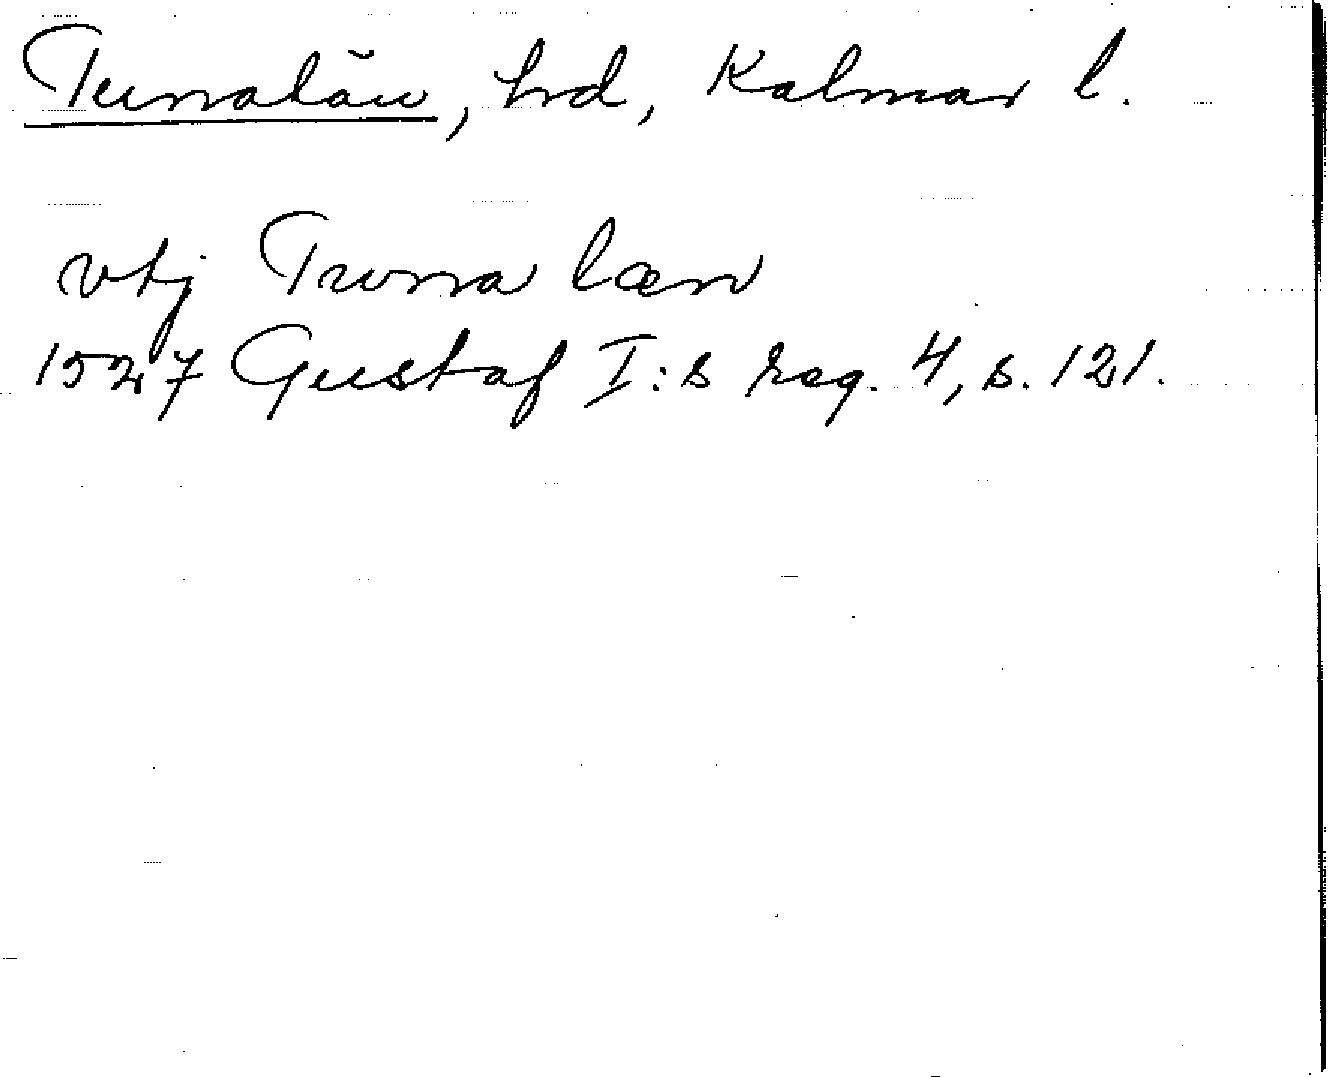 Tunalän, hd, Kalmar l.
vtj Twna læn
1527 Gustaf I:s reg. 4, s. 121.